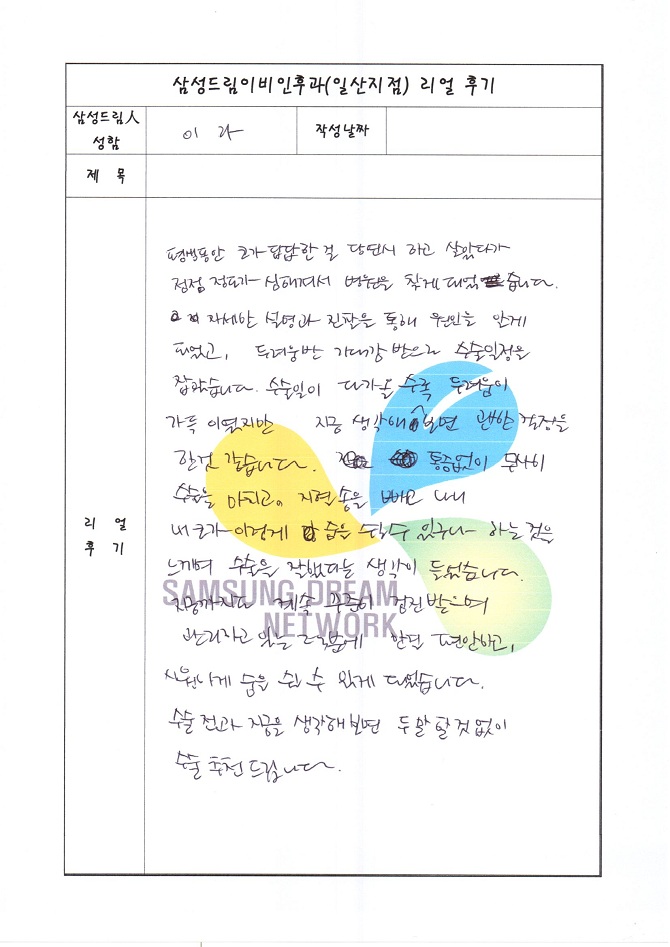 삼성드림이비인후과(일산지점) 리얼 후기
삼성드림人
성함
이 라
작성날짜
제 목
리 얼
후 기
평생동안 코가 답답한 걸 당연시 하고 살았다가
점점 정도가 심해져서 병원을 찾게 되었습니다.
자세한 설명과 진찰을 통해 원인을 알게
되었고, 두려움반 기대감 반으로 수술일정을
잡았습니다. 수술일이 다가올 수록 두려움이
가득 이였지만 지금 생각해 보면 괜한 걱정을
한것 같습니다. 통증없이 무사히
수술을 마치고, 지혈 솜을 빼고 나니
내 코가 이렇게 숨을 쉴 수 있구나 하는 것을
느끼며 수술을 잘했다는 생각이 들었습니다.
지금까지도 계속 꾸준히 검진 받으며
관리하고 있는 한결 편안하고,
시원하게 숨을 쉴 수 있게 되었습니다.
수술 전과 지금을 생각해보면 두 말 할 것 없이
수술 추천 드립니다.
SAMSUNG DREAM
NETWORK